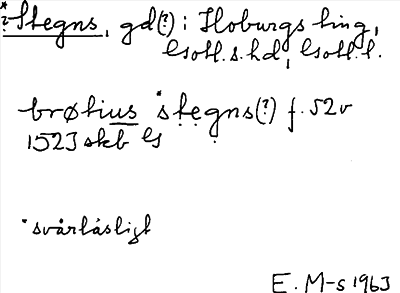 *?Stegns, gd(?) i Hoburgs ting,
Gotl. s. hd, Gotl. l.
brøtius *stegns(?) f. 52v
1523 skb G
*svårläsligt
E. M-s 1963